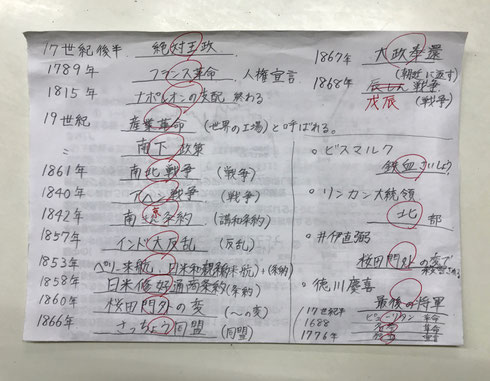 17世紀後半 絶対王政
1789年 フランス革命 人権宣言
1815年 ナポレオンの支配 終わる
19世紀 産業革命 (世界の工場)と呼ばれる。
〃 南下政策
1861年 南北戦争 (戦争)
1840年 アヘン戦争 (戦争)
1842年 南京条約 (講和条約)
1857年 インド大反乱 (反乱)
1853年 ペリー来航 日米和親 (来航)+(条約)
1858年 日米修好通商条約(条約)
1860年 桜田門外の変 (~の変)
1866年 さっちょう同盟 (同盟)
1867年 大政奉還
(朝廷に返す)
1868年 戦争
戊辰(戦争)
。ビスマルク
鉄血さいしょう
。リンカン大統領
北部
。井伊直弼
桜田門外の変で
。徳川慶喜
最後の将軍
17世紀半 ピューリタン 革命
1688 名誉 革命
1776年